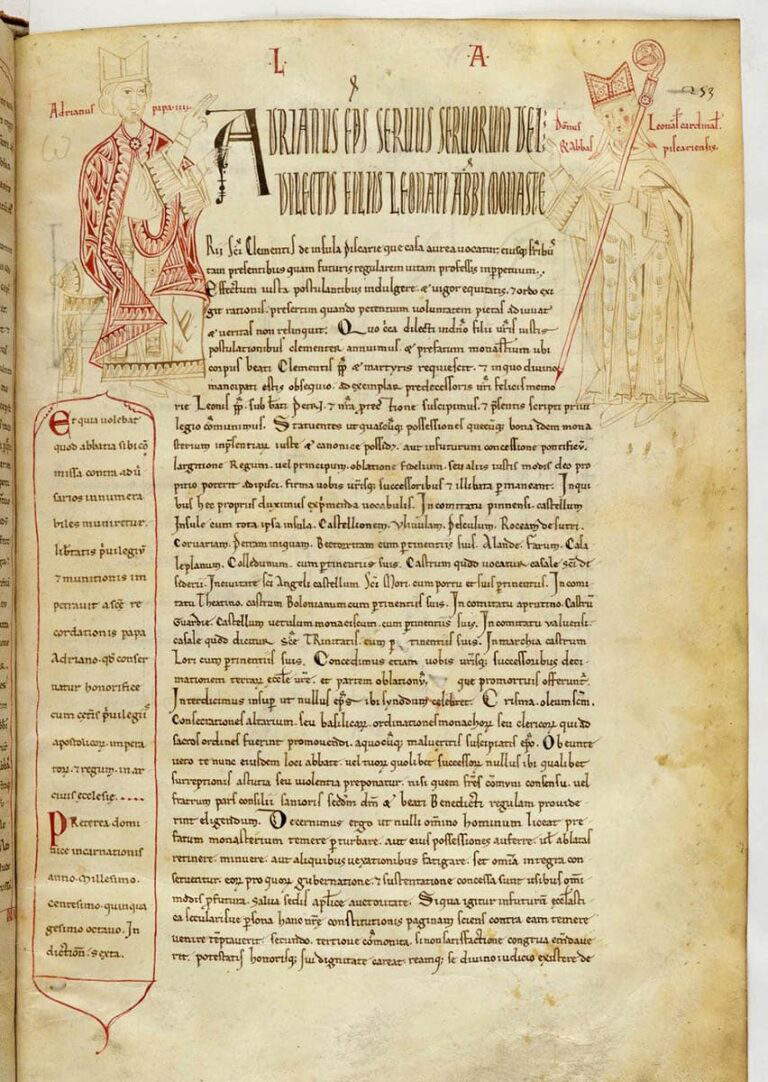 L A
253
Adrianus papa iiii
Domus & abbas Leonas cardinal piscariensis
ADRIANUS EPS SERVUS SERVORUM DEI:
DILECTIS FILIIS LEONATI ABBI MONASTE
Rii Sci Clementis de insula piscarie que casa aurea vocatur eiusq; fribus
tam presentibus quam futuris regularem vitam professis inppetuum.
Effectum iusta postulantibus indulgere & vigor equitatis & ordo exi
git rationis presertim quando petentum voluntatem pietas adiuvat
& veritas non relinquit. Quo cca dilecti indno filii uris iustis
postulationibus clementer annuimus & prefatum monastium ubi
corpus beati Clementis pp & martyris requiescit & inquo divino
mancipati estis obsequio ad exemplar predecessoris nri felicis memo
rie Leonis pp. sub bati Petri & nra ptectione suscipimus & psentis scripti privi
legio comunimus. Statuentes ut quascuq; possessiones quecuq; bona idem mona
sterium inpsentiar iuste & canonice possidet aut infuturum concessione pontificum
largitione Regum vel principum oblatione fidelium seu aliis iustis modis deo pro
pitio poterit adipisci firma vobis vrisq; successoribus & illibata pmaneant. In qui
bus hec propriis duximus exprimenda vocabulis. In comitatu pinnensi castellum
Insule cum tota ipsa insula. Castellionem. Olivulam. Pesculum. Roccam de sutri.
Corvariam. Petram iniquam. cum ptinentiis suis. Alande. Farum. Casa
leplanum. Colledunum. cum ptinentiis suis. Castrum quod vocatur casale sci de
sederii. In civitate sci Angeli castellum Sci Mori. cum portu et suis ptinentiis. In comi
tatu Theatino. castrum Bolonianum cum ptinentiis suis. In comitatu aprutino. Castru
Guardie. Castellum vetulum monacescum. cum ptinentiis suis. In comitatu valvensi.
casale quod dicitur sce Trinitatis. cum ptinentiis suis. In marchia castrum
Lori cum ptinentiis suis. Concedimus etiam vobis vrisq; successoribus deci
mationem terrar eccle vre. et partem oblationu que promortuis offerunt.
Interdicimus insup ut nullus eps ibi synodum celebret. Crisma. oleum scm.
Consecrationes altarium. seu basilicar. ordinationes monachor seu clericor qui ad
sacros ordines fuerint promovendi. aquocuq; malveritis suscipiatis epo. Obeunte
vero te nunc eiusdem loci abbate. vel tuor quolibet successor nullus ibi qualibet
surreptionis astutia seu violentia preponatur. nisi quem fres comuni consensu. vel
fratrum pars consilii sanioris sedm dm & beati Benedicti regulam provide
rint eligendum. Decernimus ergo ut nulli omnino hominum liceat pre
fatum monasterium temere pturbare. aut eius possessiones auferre. ul ablatas
retinere. minuere. aut aliquibus vexationibus fatigare. set omia integra con
serventur. eor pro quor gubernatione & sustentatione concessa sunt usibus omi
modis pfutura. salva sedis aplice auctoritate. Siqua igitur infuturum ecclasti
ca secularisve psona hanc nre constitutionis paginam sciens contra eam temere
venire temptaverit. secundo. tertiove comonita. si non satisfactione congrua emdave
rit. potestatis honorisq; sui dignitate careat. reamq; se divino iudicio existere de
Et quia volebat
quod abbatia sibi co
missa contra adu
sarios innumera
biles muniretur.
libtatis pvilegiu
& munitionis im
petravit a sce re
cordationis papa
Adriano. qd conser
vatur honorifice
cum cetis pvilegiis
apostolicor. impera
tor. & regum. in ar
civis ecclesie.....
Preterea domi
nice incarnationis
anno. Millesimo.
centesimo. quinqua
gesimo octavo. In
diction. sexta.